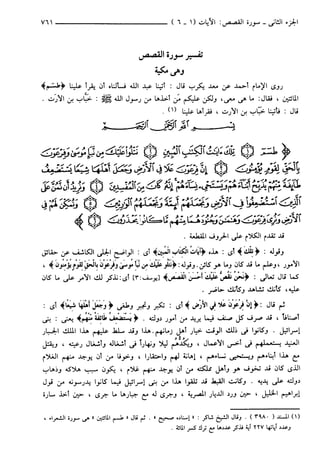 الجزء الثانى ـ سورة القصص: الآيات (١ - ٦) ـــــــ ٧٦١
تفسير سورة القصص
وهى مكية
روى الإمام أحمد عن معد يكرب قال : أتينا عبد الله فسألناه أن يقرأ علينا ﴿طسٓمٓ﴾
المائتين ، فقال: ما هى معى، ولكن عليكم من أخذها من رسول الله ﷺ : خبَّاب بن الأرَت .
قال : فأتينا خبّاب بن الأرت ، فقرأها علينا (١) .
بسم الله الرحمن الرحيم
﴿ طسٓمٓ ۝ تِلْكَ ءَايَٰتُ ٱلْكِتَٰبِ ٱلْمُبِينِ ۝ نَتْلُوا۟ عَلَيْكَ مِن نَّبَإِ مُوسَىٰ وَفِرْعَوْنَ
بِٱلْحَقِّ لِقَوْمٍ يُؤْمِنُونَ ۝ إِنَّ فِرْعَوْنَ عَلَا فِى ٱلْأَرْضِ وَجَعَلَ أَهْلَهَا شِيَعًا يَسْتَضْعِفُ
طَآئِفَةً مِّنْهُمْ يُذَبِّحُ أَبْنَآءَهُمْ وَيَسْتَحْىِۦ نِسَآءَهُمْ إِنَّهُۥ كَانَ مِنَ ٱلْمُفْسِدِينَ ۝ وَنُرِيدُ
أَن نَّمُنَّ عَلَى ٱلَّذِينَ ٱسْتُضْعِفُوا۟ فِى ٱلْأَرْضِ وَنَجْعَلَهُمْ أَئِمَّةً وَنَجْعَلَهُمُ ٱلْوَٰرِثِينَ ۝
وَنُمَكِّنَ لَهُمْ فِى ٱلْأَرْضِ وَنُرِىَ فِرْعَوْنَ وَهَٰمَٰنَ وَجُنُودَهُمَا مِنْهُم مَّا كَانُوا۟ يَحْذَرُونَ ۝ ﴾
قد تقدم الكلام على الحروف المقطعة .
وقوله : ﴿تِلْكَ﴾ أى : هذه ﴿آيَاتُ الْكِتَابِ الْمُبِينِ﴾ أى : الواضح الجلى الكاشف عن حقائق
الأمور ،وعلم ما قد كان وما هو كائن .وقوله: ﴿نَتْلُوا عَلَيْكَ مِن نَّبَإِ مُوسَىٰ وَفِرْعَوْنَ بِالْحَقِّ لِقَوْمٍ يُؤْمِنُونَ﴾ ،
كما قال تعالى : ﴿نَحْنُ نَقُصُّ عَلَيْكَ أَحْسَنَ الْقَصَصِ﴾ [يوسف:٣] أى :نذكر لك الأمر على ما كان
عليه، كأنك تشاهد وكأنك حاضر .
ثم قال : ﴿إِنَّ فِرْعَوْنَ عَلا فِي الأَرْضِ﴾ أى : تكبر وتجبر وطغى ﴿ وَجَعَلَ أَهْلَهَا شِيَعًا﴾ أى :
أصنافاً ، قد صرف كل صنف فيما يريد من أمور دولته . ﴿ يَسْتَضْعِفُ طَائِفَةً مِّنْهُمْ﴾ يعنى : بنى
إسرائيل . وكانوا فى ذلك الوقت خيار أهل زمانهم.هذا وقد سلط عليهم هذا الملك الجبار
العنيد يستعملهم فى أخس الأعمال ، ويكُدُّهم ليلا ونهاراً فى أشغاله وأشغال رعيته ، ويقتل
مع هذا أبناءهم ويستحيى نساءهم ، إهانة لهم واحتقارا ، وخوفا من أن يوجد منهم الغلام
الذى كان قد تخوف هو وأهل مملكته من أن يوجد منهم غلام ، يكون سبب هلاكه وذهاب
دولته على يديه . وكانت القبط قد تلقوا هذا من بنى إسرائيل فيما كانوا يدرسونه من قول
إبراهيم الخليل ، حين ورد الديار المصرية ، وجرى له مع جبارها ما جرى ، حين أخذ سارة
(١) المسند (٣٩٨٠) . وقال الشيخ شاكر : «إسناده صحيح» . ثم قال «طسم المائتين» هى سورة الشعراء ،
وعدد آياتها ٢٢٧ آية فذكر عددها مع ترك كسر المائة .